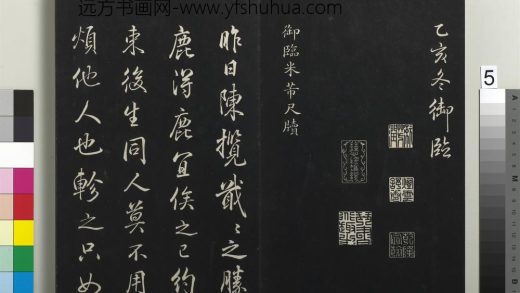 远方书画网-www.yfshuhua.com
乙亥冬御臨
御臨米芾尺牘
昨日陳攬戢〻之勝
鹿得鹿宜俟之已約
束後生同人莫不用
煩他人也軫之只如
5